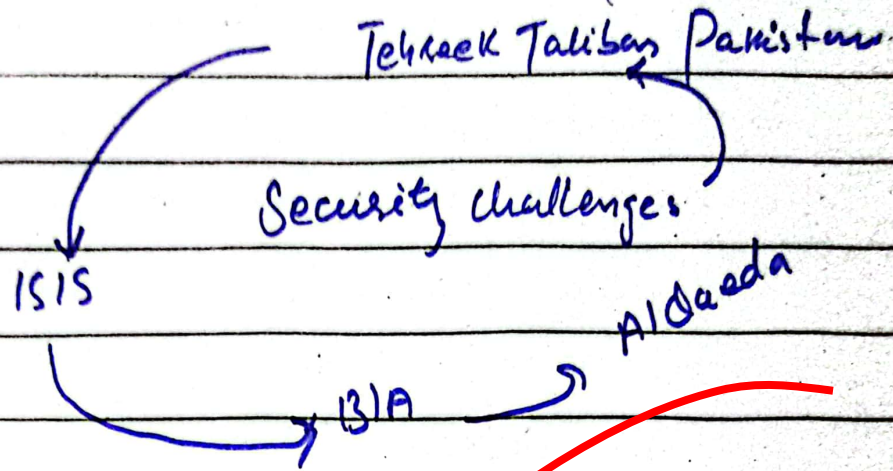 Tehreek Taliban Pakistan
Security challenges
ISIS
Al Qaeda
BLA